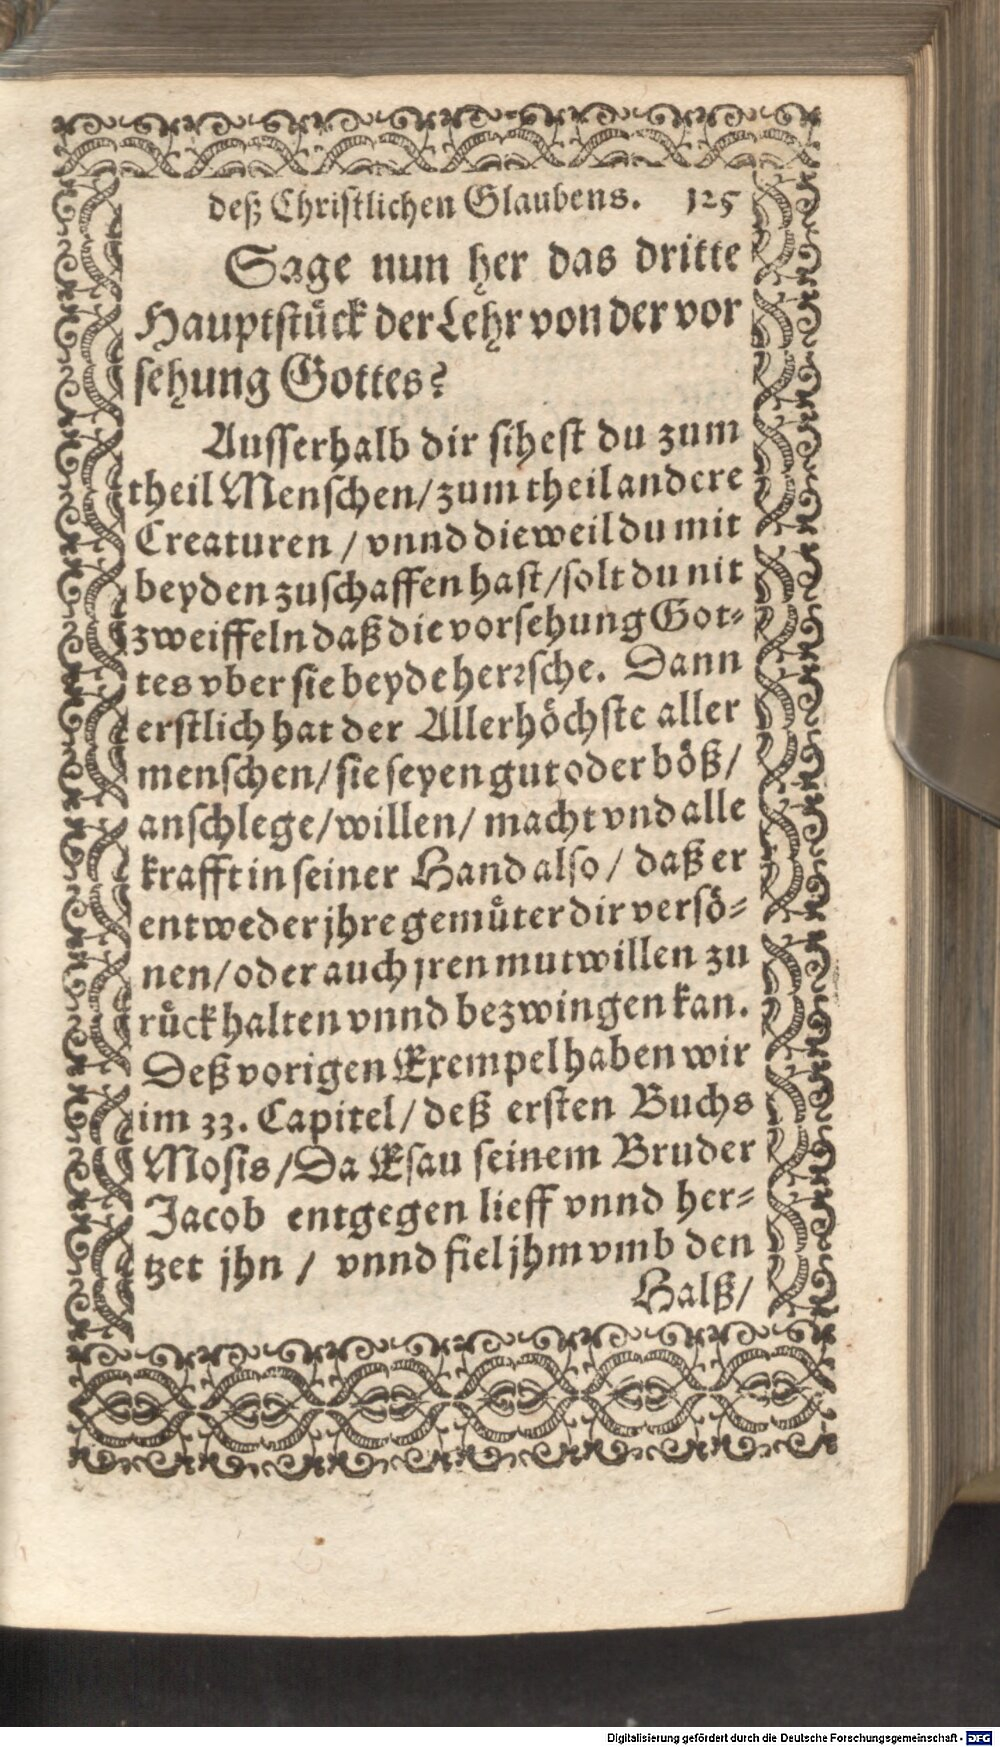 deß Christlichen Glaubens. 125
Sage nun her das dritte
Hauptstuͤck der Lehr von der vor
sehung Gottes?
Ausserhalb dir sihest du zum
theil Menschen/ zum theil andere
Creaturen / vnnd dieweil du mit
beyden zuschaffen hast/ solt du nit
zweiffeln daß die vorsehung Got-
tes vber sie beyde herrsche. Dann
erstlich hat der Allerhoͤchste aller
menschen/ sie seyen gut oder boͤß/
anschlege/ willen/ macht vnd alle
krafft in seiner Hand also / daß er
entweder jhre gemuͤter dir versoͤ-
nen/ oder auch jren mutwillen zu
ruͤck halten vnnd bezwingen kan.
Deß vorigen Exempel haben wir
im 33. Capitel/ deß ersten Buchs
Mosis/ Da Esau seinem Bruder
Jacob entgegen lieff vnnd her-
tzet jhn / vnnd fiel jhm vmb den
Halß/
Digitalisierung gefördert durch die Deutsche Forschungsgemeinschaft - DFG